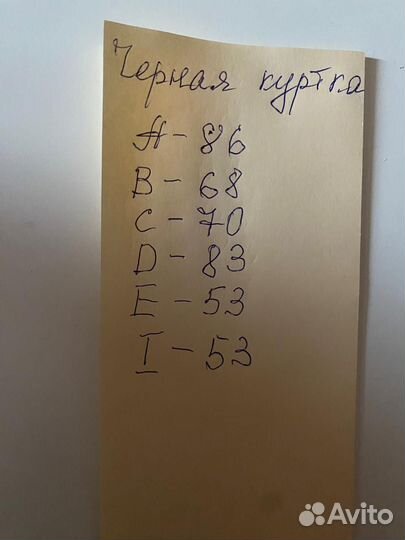 Черная куртка
A - 86
B - 68
C - 70
D - 83
E - 53
I - 53
Avito